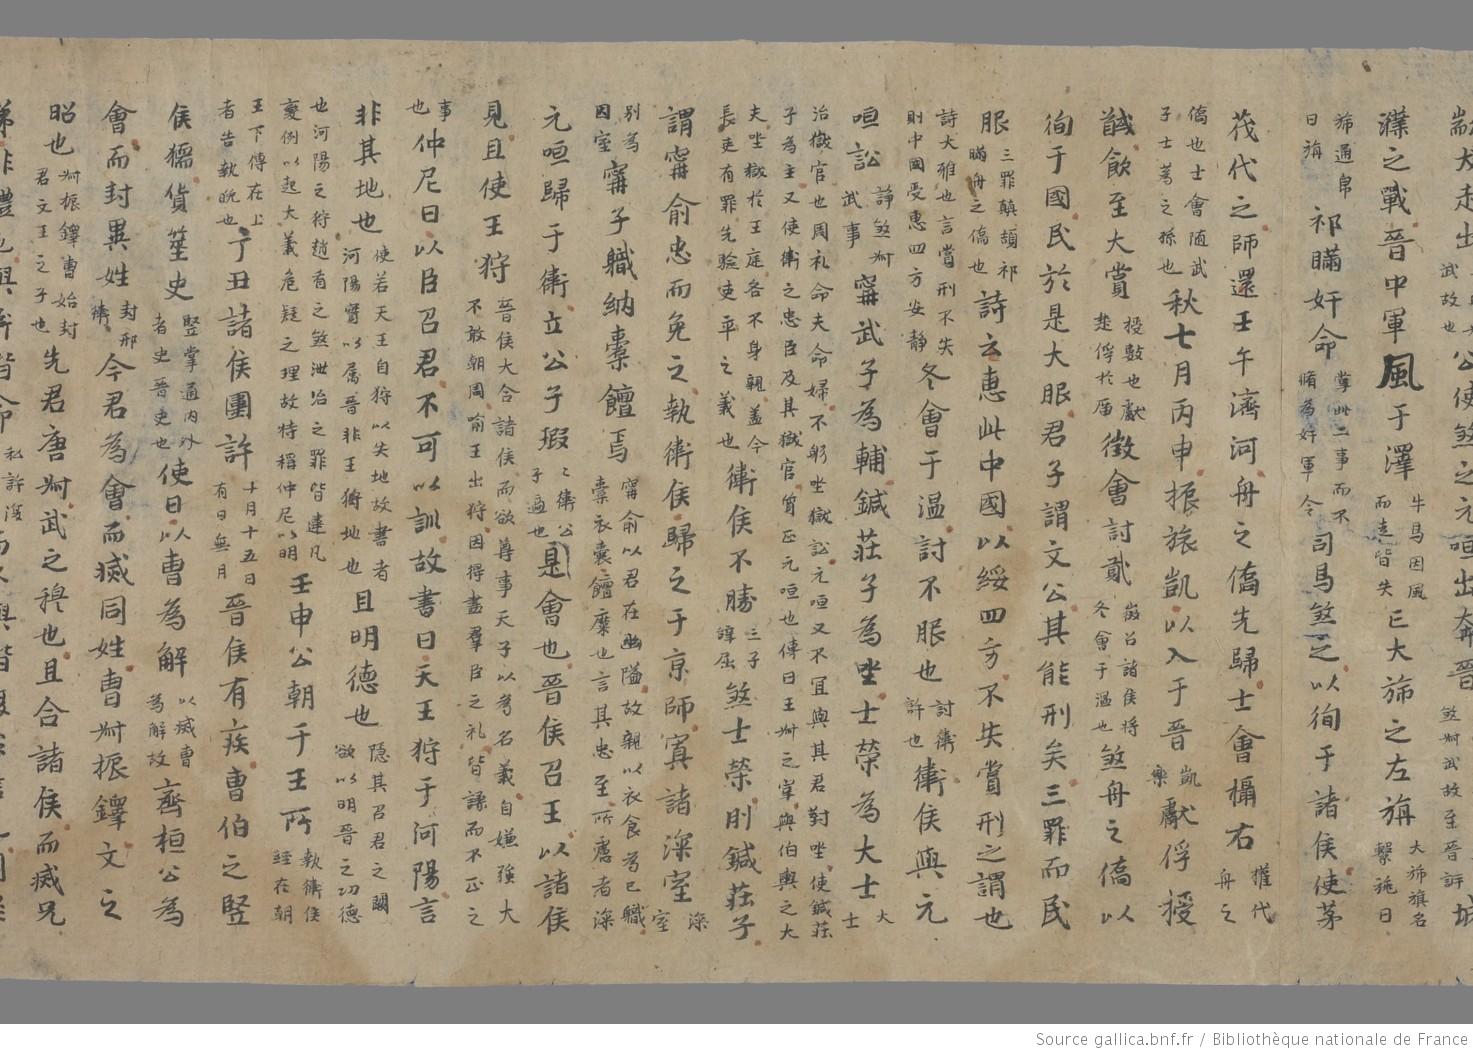 公使煞之元咺出奔晉煞叔武故至晉訴城
濮之戰晉中軍風于澤牛馬因風而走皆失亡大旆之左旃大旆旗名繫旐曰
旆通帛曰旃祁瞞奸命掌此二事而不脩為奸軍令司馬煞之以徇于諸侯使茅
茷代之師還壬午濟河舟之僑先歸士會攝右權代舟之
僑也士會隨武子士蒍之孫也秋七月丙申振旅凱以入于晉凱樂獻俘授
馘飲至大賞授數也獻楚俘於廟徵會討貳徵召諸侯將冬會于溫也煞舟之僑以
徇于國民於是大服君子謂文公其能刑矣三罪而民
服三罪顛頡祁瞞舟之僑也詩云惠此中國以綏四方不失賞刑之謂也
詩大雅也言賞刑不失則中國受惠四方安靜冬會于溫討不服也討衛許也衛侯與元
咺訟諍煞叔武事甯武子為輔鍼莊子為坐士榮為大士大士
治獄官也周礼命夫命婦不躬坐獄訟元咺又不宜與其君對坐使鍼莊
子為主又使衛之忠臣及其獄官質正元咺也傳曰王叔之宰與伯輿之大
夫坐獄於王庭各不身親蓋今長吏有罪先驗吏平之義也衛侯不勝三子辭屈煞士榮刖鍼莊子
謂甯俞忠而免之執衛侯歸之于京師寘諸深室深室
別為囚室甯子職納橐饘焉甯俞以君在幽隘故親以衣食為己職橐衣囊饘糜也言其忠至所慮者深
元咺歸于衛立公子瑕是會也晉侯召王以諸侯
見且使王狩晉侯大合諸侯而欲尊事天子以為名義自嫌強大不敢朝周喻王出狩因得盡羣臣之礼皆譎而不正之
事也仲尼曰以臣召君不可以訓故書曰天王狩于河陽言
非其地也使若天王自狩以失地故書者河陽實以屬晉非王狩地也且明德也隱其召君之闕欲以明晉之功德
也河陽之狩趙盾之煞泄冶之罪皆違凡變例以起大義危疑之理故特稱仲尼以明壬申公朝于王所執衛侯經在朝
王下傳在上者告執晚也丁丑諸侯圍許十月十五日有日無月晉侯有疾曹伯之豎
侯獳貨筮史豎掌通內外者史晉史也使曰以曹為解以滅曹為解故齊桓公為
會而封異姓封邢衛今君為會而滅同姓曹叔振鐸文之
昭也叔振鐸曹始封君文王之子也先君唐叔武之穆也且合諸侯而滅兄
Source gallica.bnf.fr / Bibliothèque nationale de France